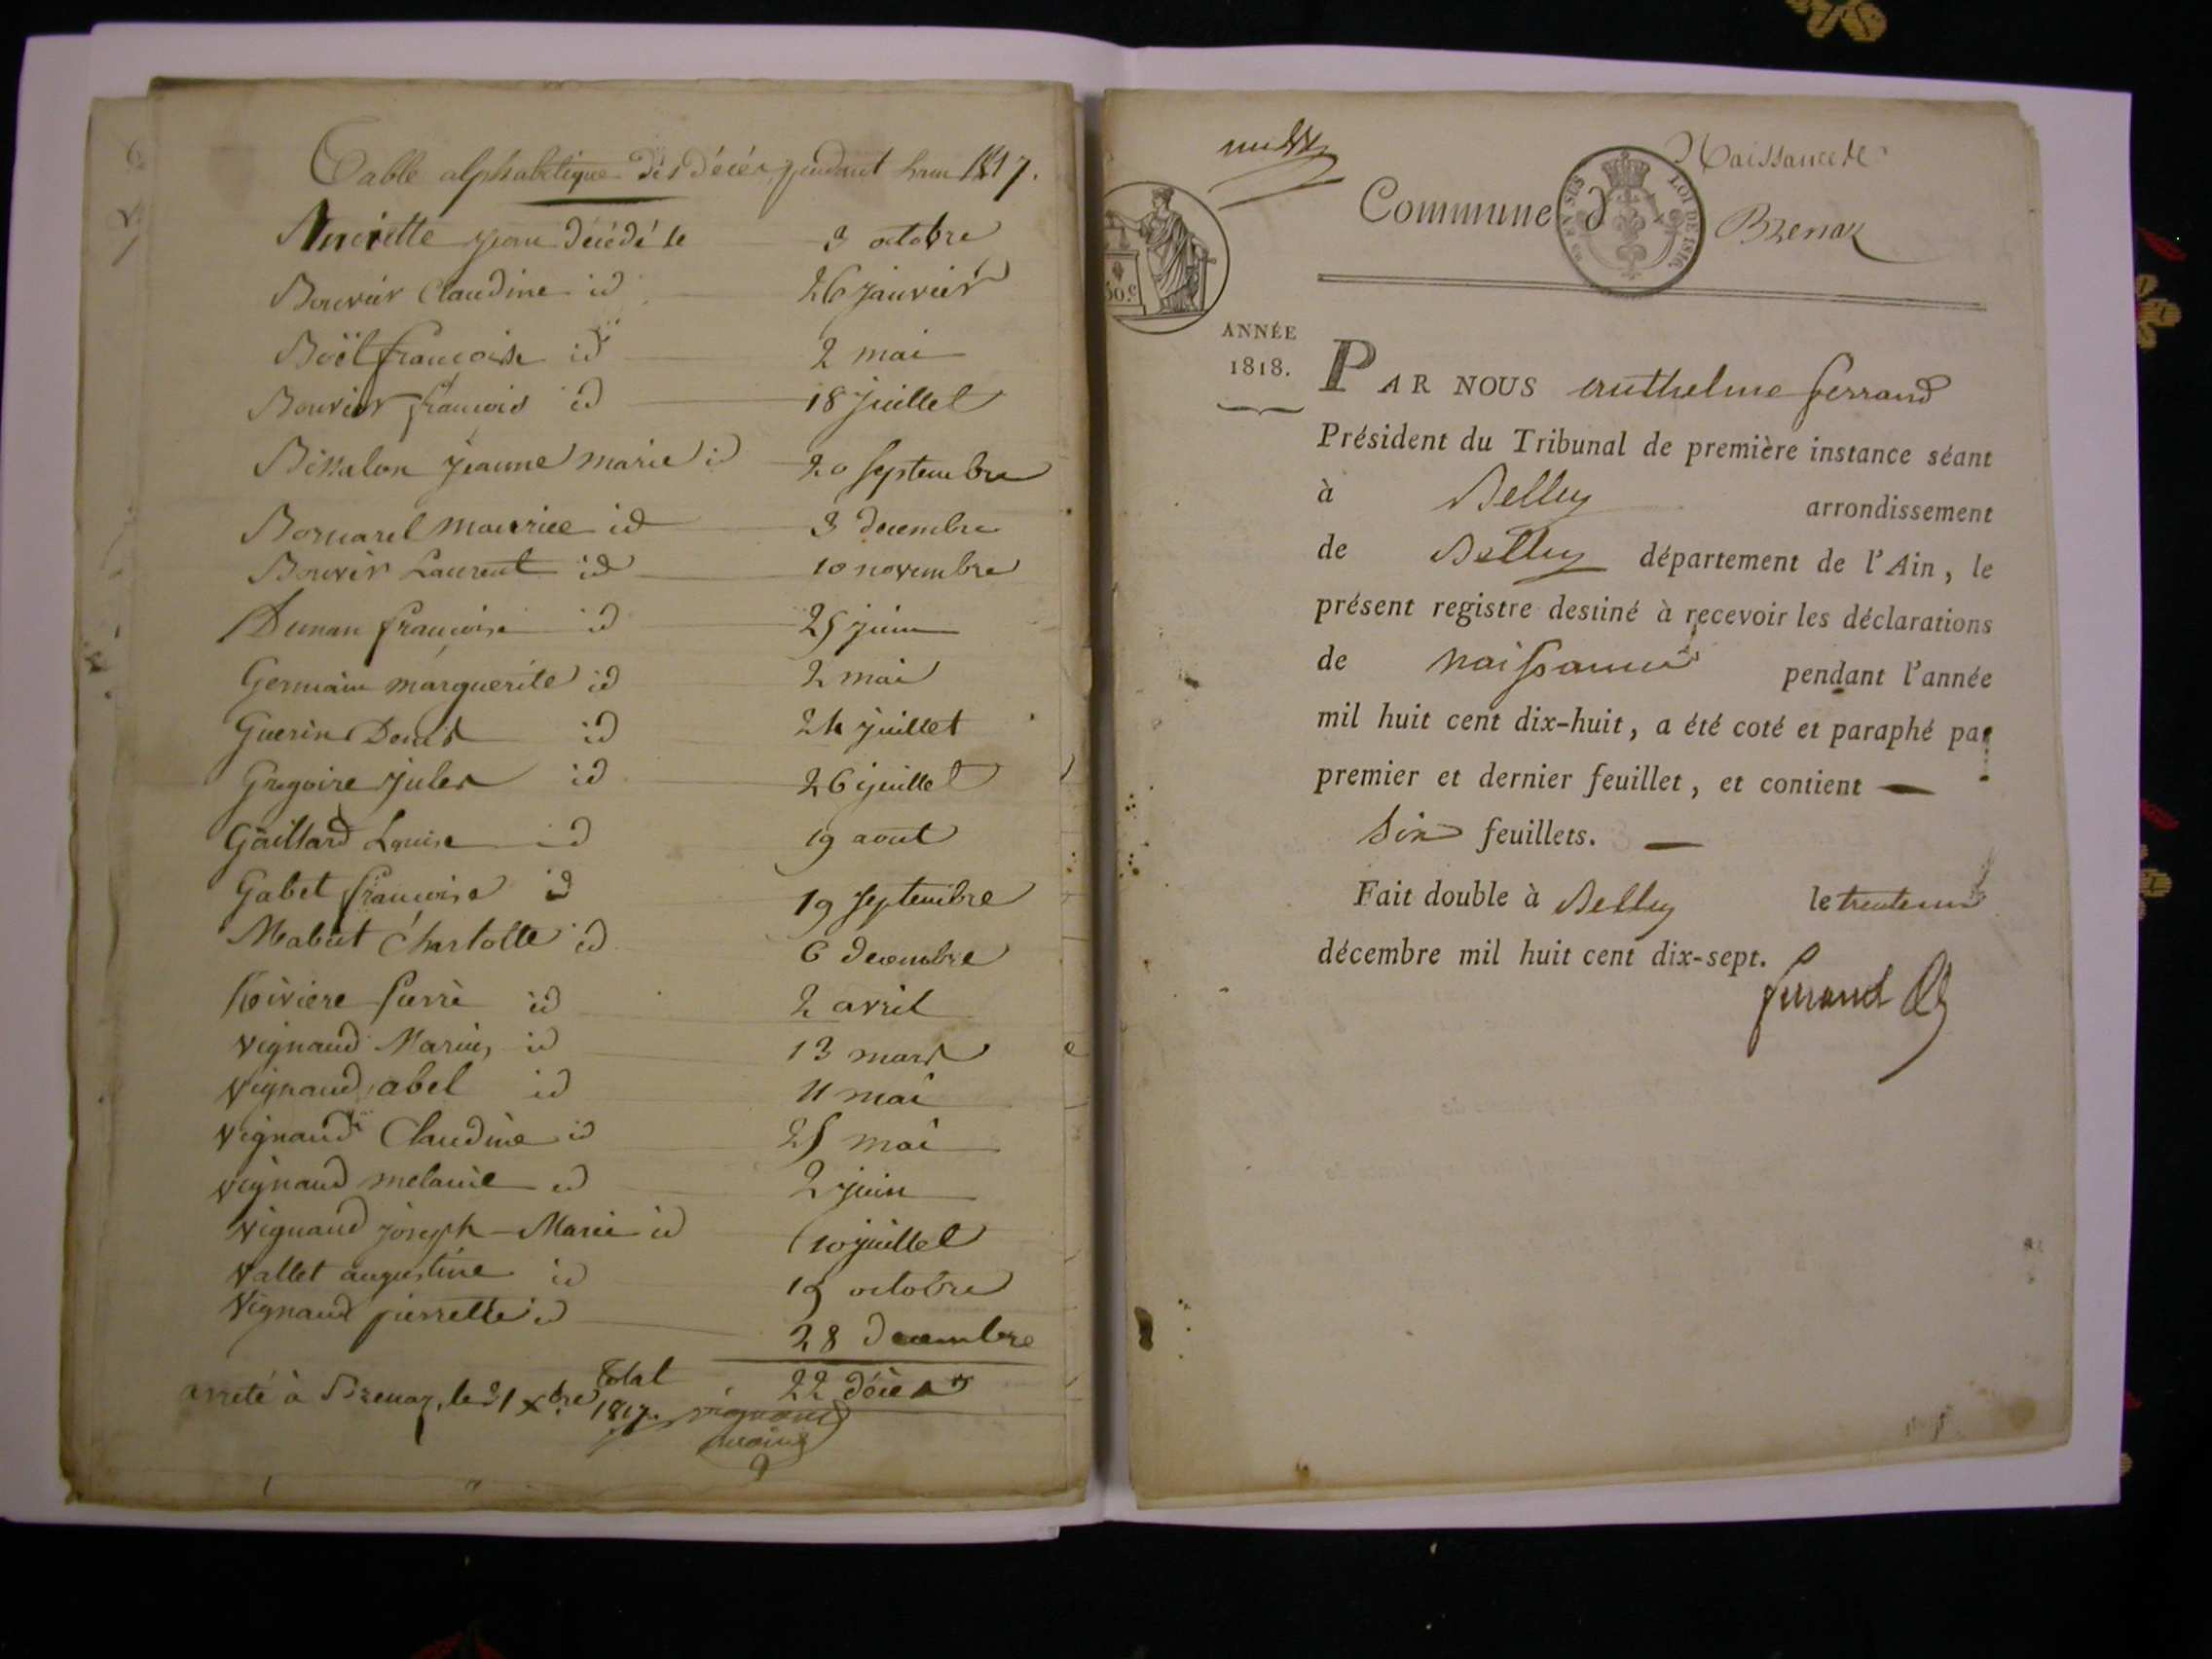 Table alphabétique des décès pendant l'an 1817.
jean décédé le 3 octobre
Bouvier Claudine id 26 janvier
Böel françoise id 2 mai
Bouvier françois id 18 juillet
Bissalon jeanne marie id 20 septembre
Bornarel maurice id 3 decembre
Bouvier Laurent id 10 novembre
Duman françoise id 25 juin
Germain marguerite id 2 mai
Guerin Denis id 24 juillet
Gregoire jules id 26 juillet
Gaillard Louise id 19 aout
Gabet françoise id 19 septembre
Mabut Charlotte id 6 decembre
pierre id 2 avril
vignaud Marie id 13 mars
vignaud abel id 11 mai
vignaud Claudine id 25 mai
vignaud melanie id 2 juin
vignaud joseph-Marie id 10 juillet
vallet augustine id 19 octobre
vignaud pierrette id 28 decembre
Total 22 décès
arreté à Brenaz, le 31 Xbre 1817. vignaud
maire
Naissance de
Commune d Brenaz
EN SUS LOI DE 1816.
50 c
ANNÉE
1818.
PAR NOUS anthelme ferrand
Président du Tribunal de première instance séant
à Belley arrondissement
de Belley département de l'Ain, le
présent registre destiné à recevoir les déclarations
de naissances pendant l'année
mil huit cent dix-huit, a été coté et paraphé par
premier et dernier feuillet, et contient
Six feuillets.
Fait double à Belley le trente un
décembre mil huit cent dix-sept.
ferrand